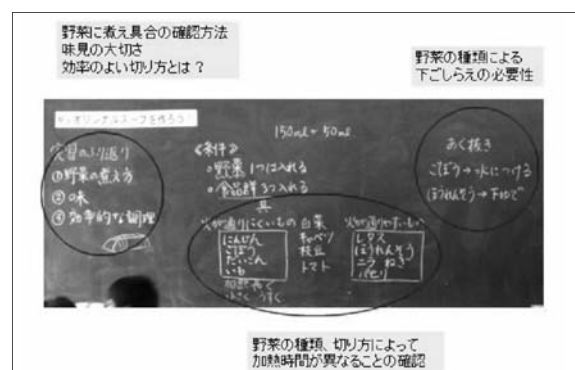 野菜に煮え具合の確認方法
味見の大切さ
効率のよい切り方とは？
野菜の種類による
下ごしらえの必要性
オリジナルスープを作ろう！
実習のふり返り
①野菜の煮え方
②味
③効率的な調理
150ml = 50ml
《条件》
・野菜1つは入れる
・食品群3つ入れる
具
火が通りにくいもの
にんじん
ごぼう
だいこん
いも
加熱長く
小さく うすく
白菜
キャベツ
枝豆
トマト
火が通りやすいもの
レタス
ほうれんそう
ニラ ねぎ
パセリ
あく抜き
ごぼう→水につける
ほうれんそう→下ゆで
野菜の種類、切り方によって
加熱時間が異なることの確認